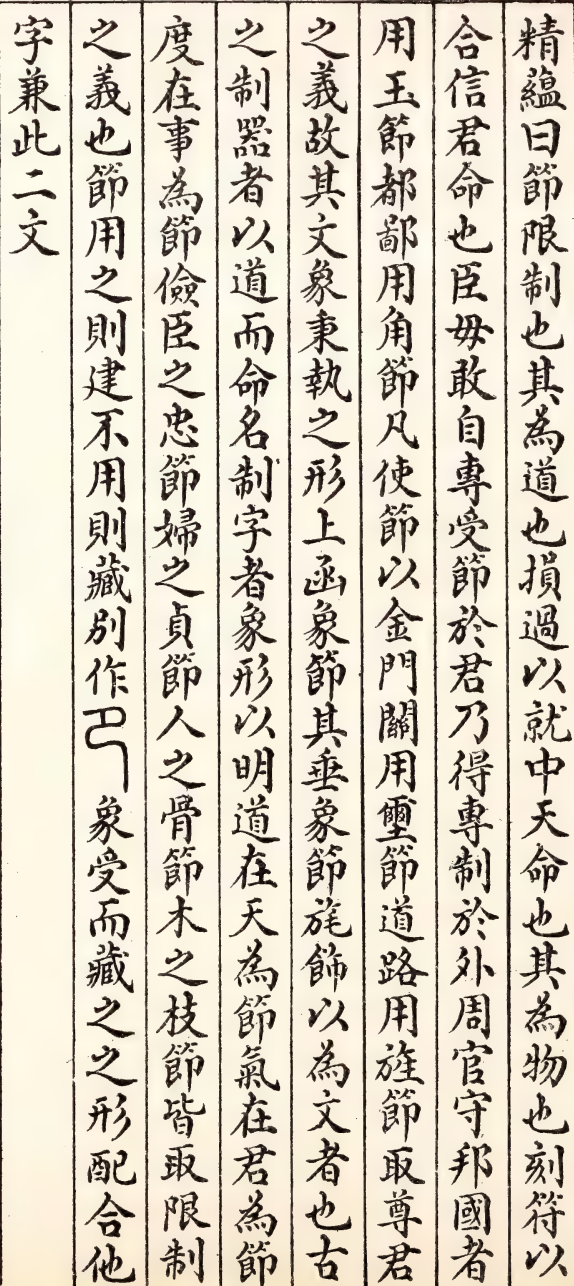 精蘊曰節限制也其為道也損過以就中天命也其為物也刻符以
合信君命也臣毋敢自專受節於君乃得專制於外周官守邦國者
用玉節都鄙用角節凡使節以金門關用璽節道路用旌節取尊君
之義故其文象秉執之形上函象節其垂象節旄飾以為文者也古
之制器者以道而命名制字者象形以明道在天為節氣在君為節
度在事為節儉臣之忠節婦之貞節人之骨節木之枝節皆取限制
之義也節用之則建不用則藏別作象受而藏之之形配合他
字兼此二文